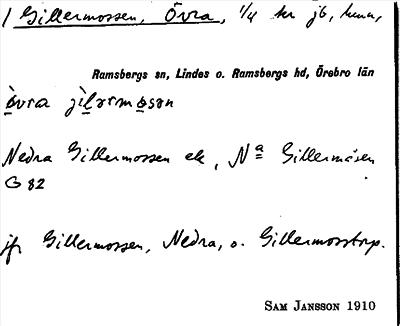 / Gillermossen, Övra, 1/4 kr jb, hmn,
Ramsbergs sn, Lindes o. Ramsbergs hd, Örebro län
Nedra Gillermossen ek, Nª Gillermåsen
G 82
jfr Gillermossen, Nedra, o. Gillermosstorp.
SAM JANSSON 1910